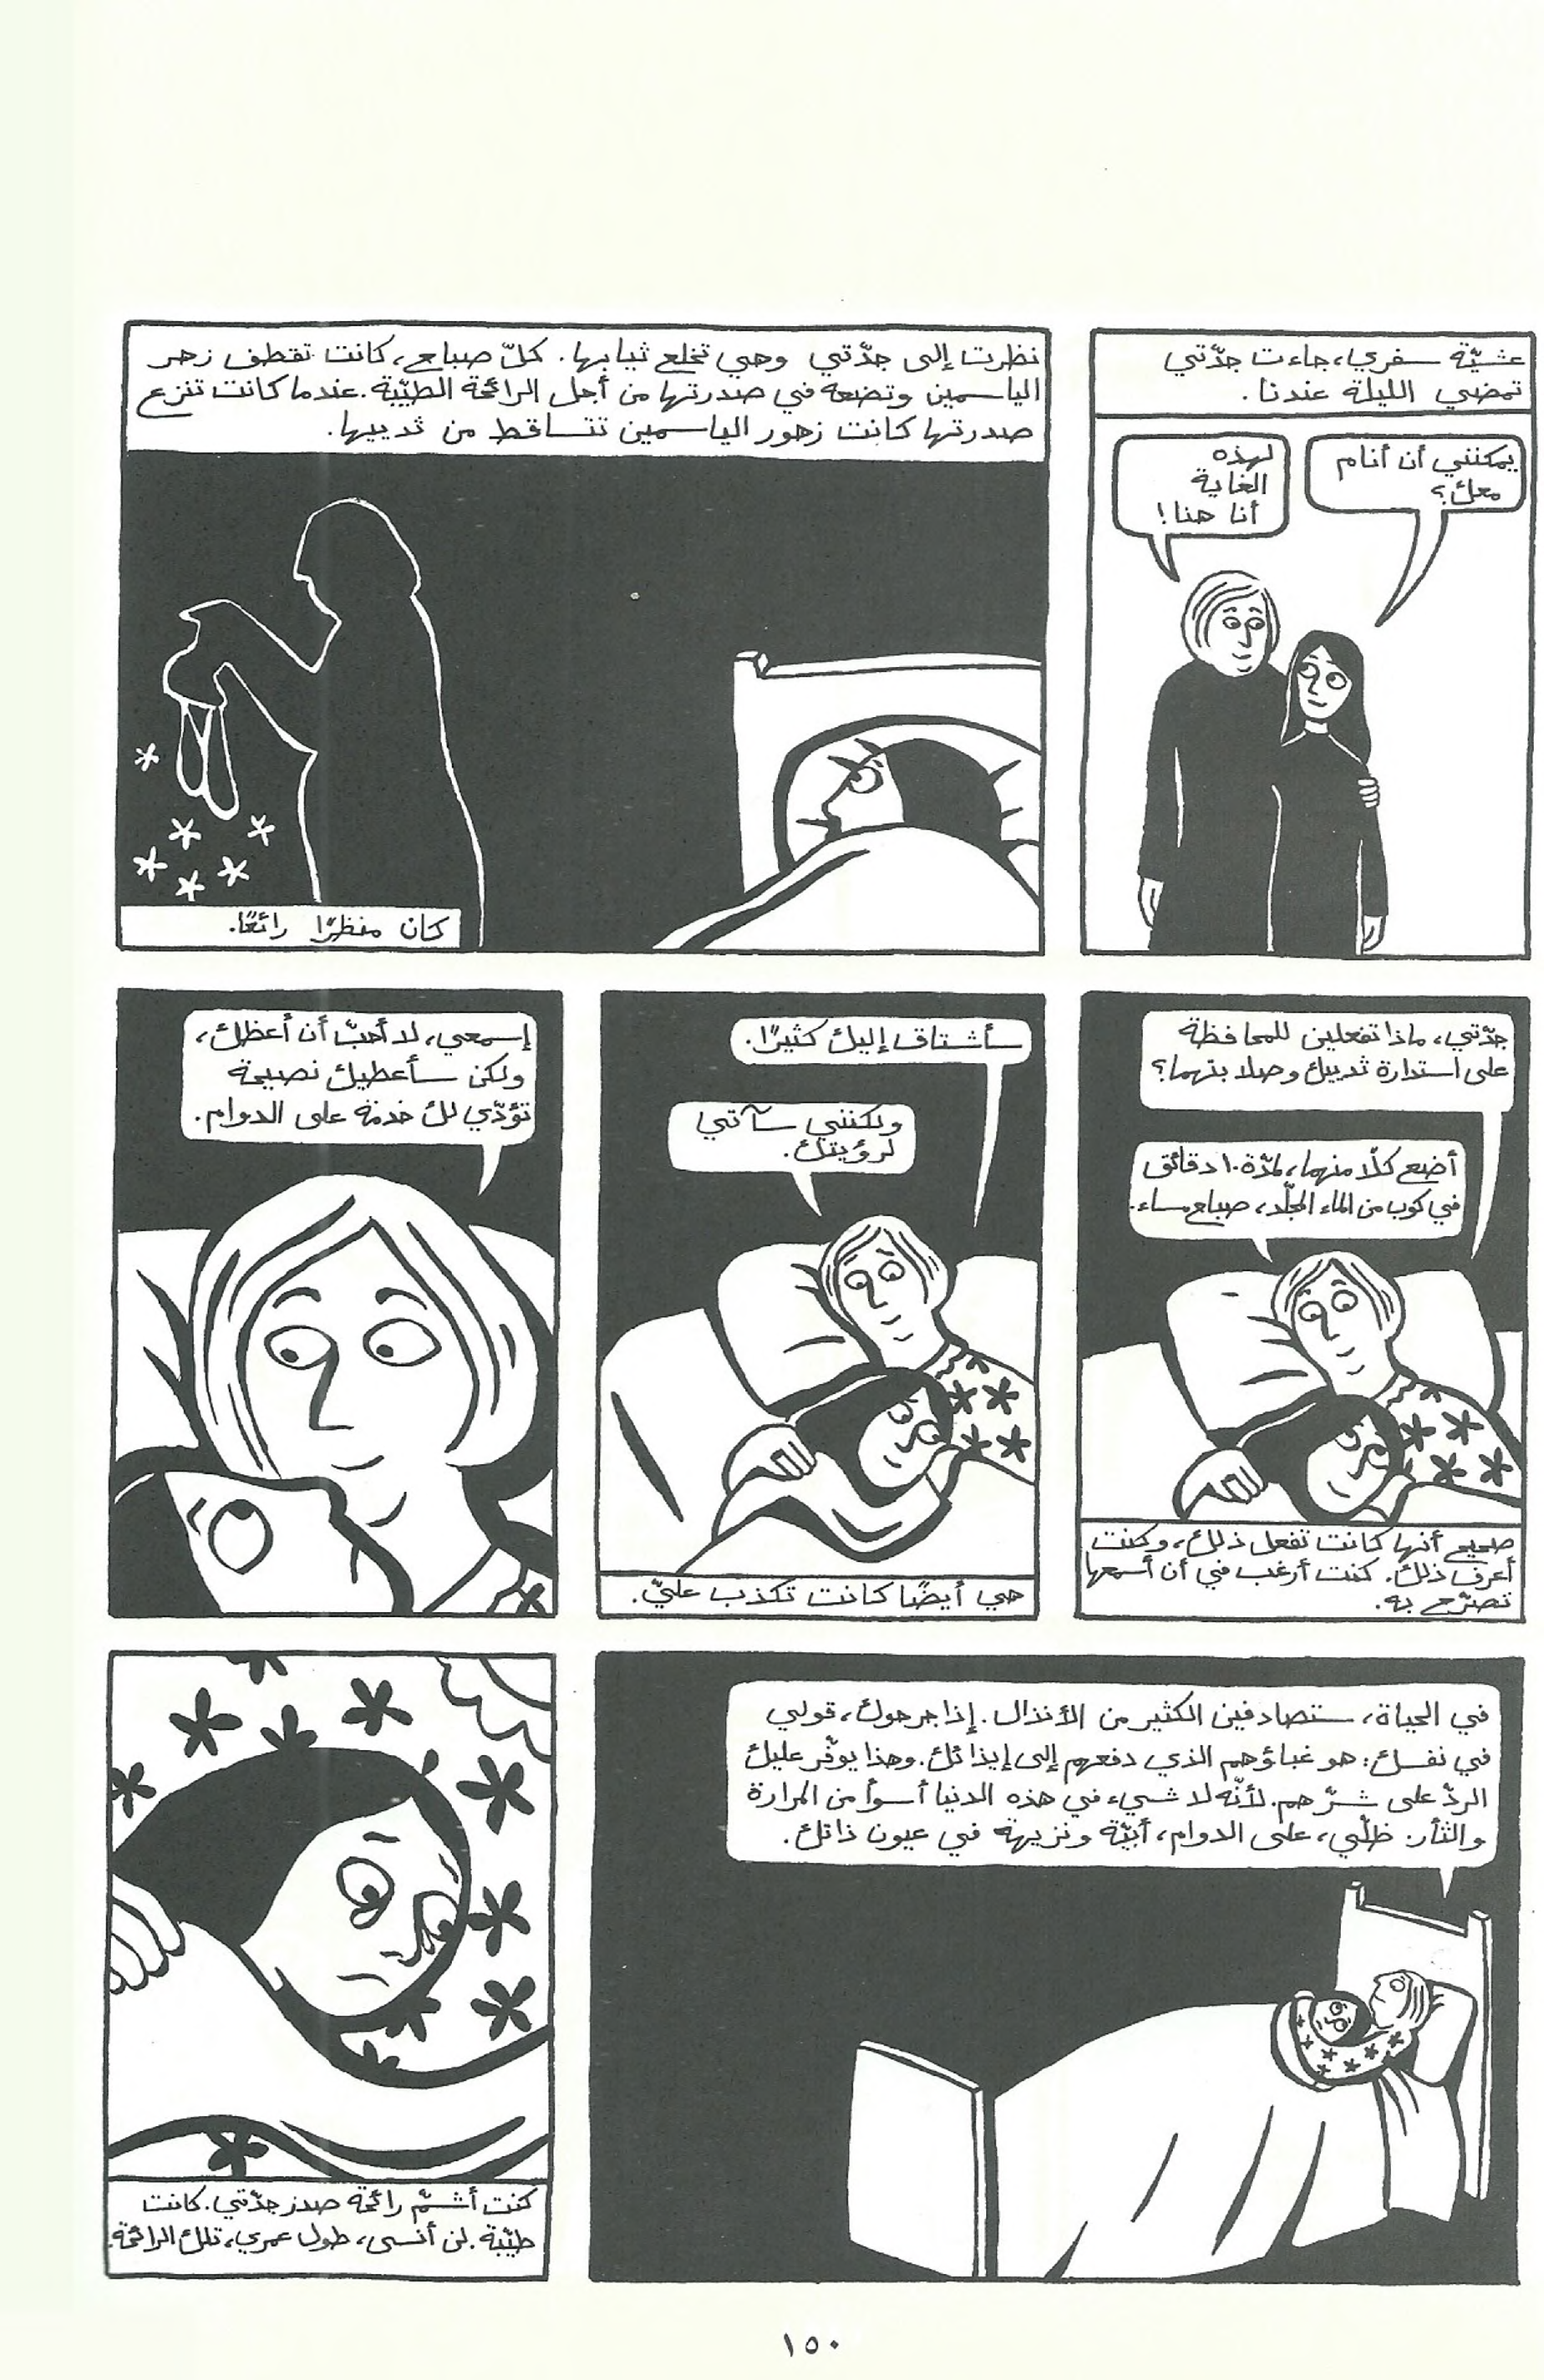 عشيّة سفري، جاءت جدّتي
تمضي الليلة عندنا.
يمكنني أن أنام
معك؟
لهذه
الغاية
أنا هنا!
نظرت إلى جدّتي وهي تخلع ثيابها. كلّ صباح، كانت تقطف زهر
الياسمين وتضعه في صدرتها من أجل الرائحة الطيّبة. عندما كانت تنزع
صدرتها كانت زهور الياسمين تتساقط من ثدييها.
كان منظرًا رائعًا.
جدّتي، ماذا تفعلين للمحافظة
على استدارة ثدييك وصلابتهما؟
أضع كلّا منهما، لمدّة ١٠ دقائق
في كوب من الماء المجلّد، صباح مساء.
صحيح أنها كانت تفعل ذلك، وكنت
أعرف ذلك. كنت أرغب في أن أسمعها
تصرّح به.
سأشتاق إليك كثيرًا.
ولكنني سآتي
لرؤيتك.
هي أيضًا كانت تكذب عليّ.
إسمعي، لا أحبّ أن أعظك،
ولكن سأعطيك نصيحة
تؤدّي لك خدمة على الدوام.
في الحياة، ستصادفين الكثير من الأنذال. إذا جرحوك، قولي
في نفسك: هو غباؤهم الذي دفعهم إلى إيذائك. وهذا يوفّر عليك
الردّ على شرّهم. لأنّه لا شيء في هذه الدنيا أسوأ من المرارة
والثأر. ظلّي، على الدوام، أبيّة ونزيهة في عيون ذاتك.
كنت أشمّ رائحة صدر جدّتي. كانت
طيّبة. لن أنسى، طول عمري، تلك الرائحة.
١٥٠